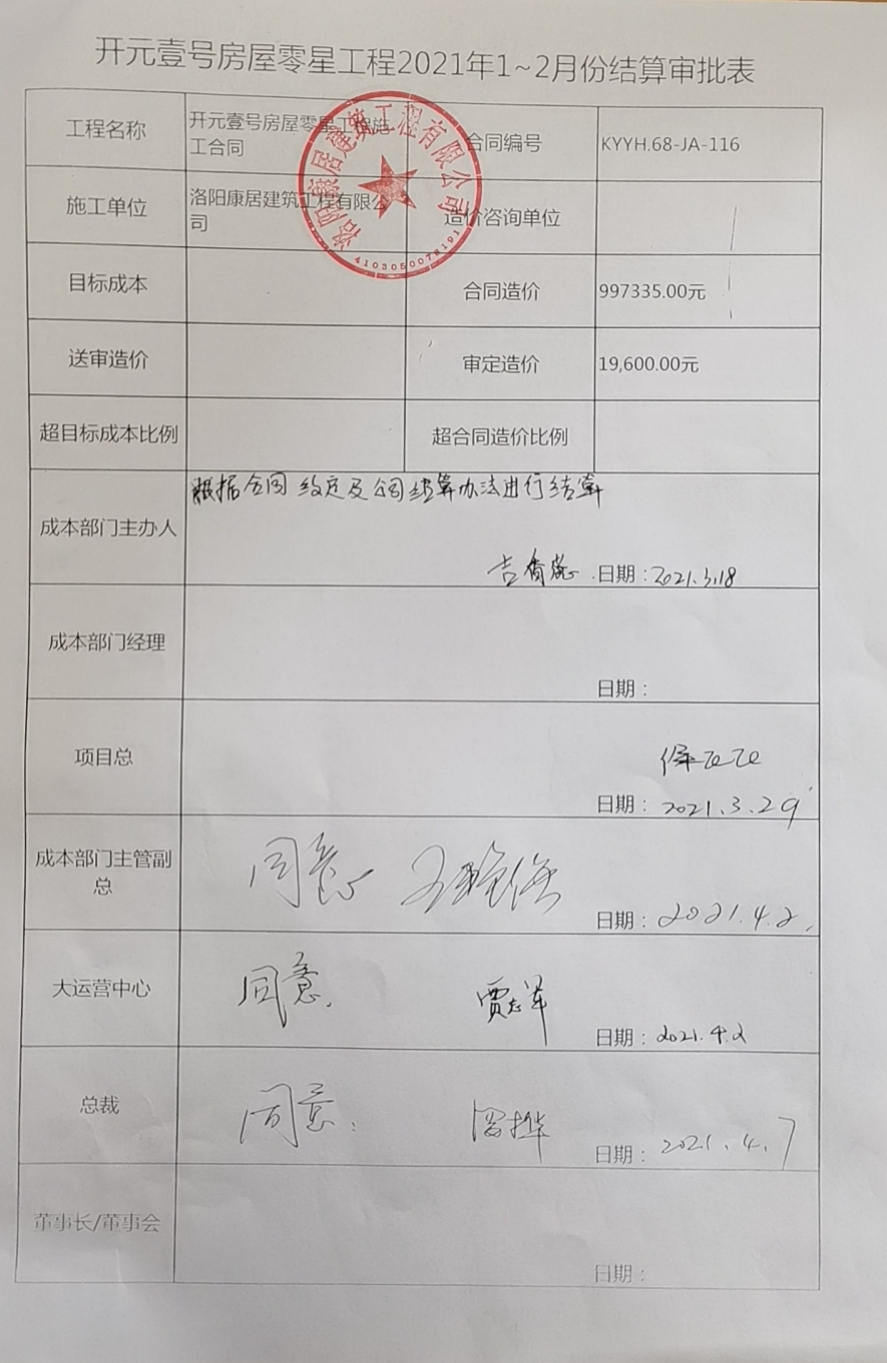 开元壹号房屋零星工程2021年1~2月份结算审批表
工程名称
开元壹号房屋零星工程施
工合同
合同编号
KYYH.68-JA-116
施工单位
洛阳康居建筑工程有限公
司
造价咨询单位
洛阳康居建筑工程有限公司
4103050078191
目标成本
合同造价
997335.00元
送审造价
审定造价
19,600.00元
超目标成本比例
超合同造价比例
成本部门主办人
根据合同约定及公司结算办法进行结算
日期：2021.3.18
成本部门经理
日期：
项目总
日期：2021.3.29
成本部门主管副
总
同意
日期：2021.4.2.
大运营中心
同意.
贾志军
日期：2021.4.2
总裁
同意.
日期：2021.4.7
董事长/董事会
日期：